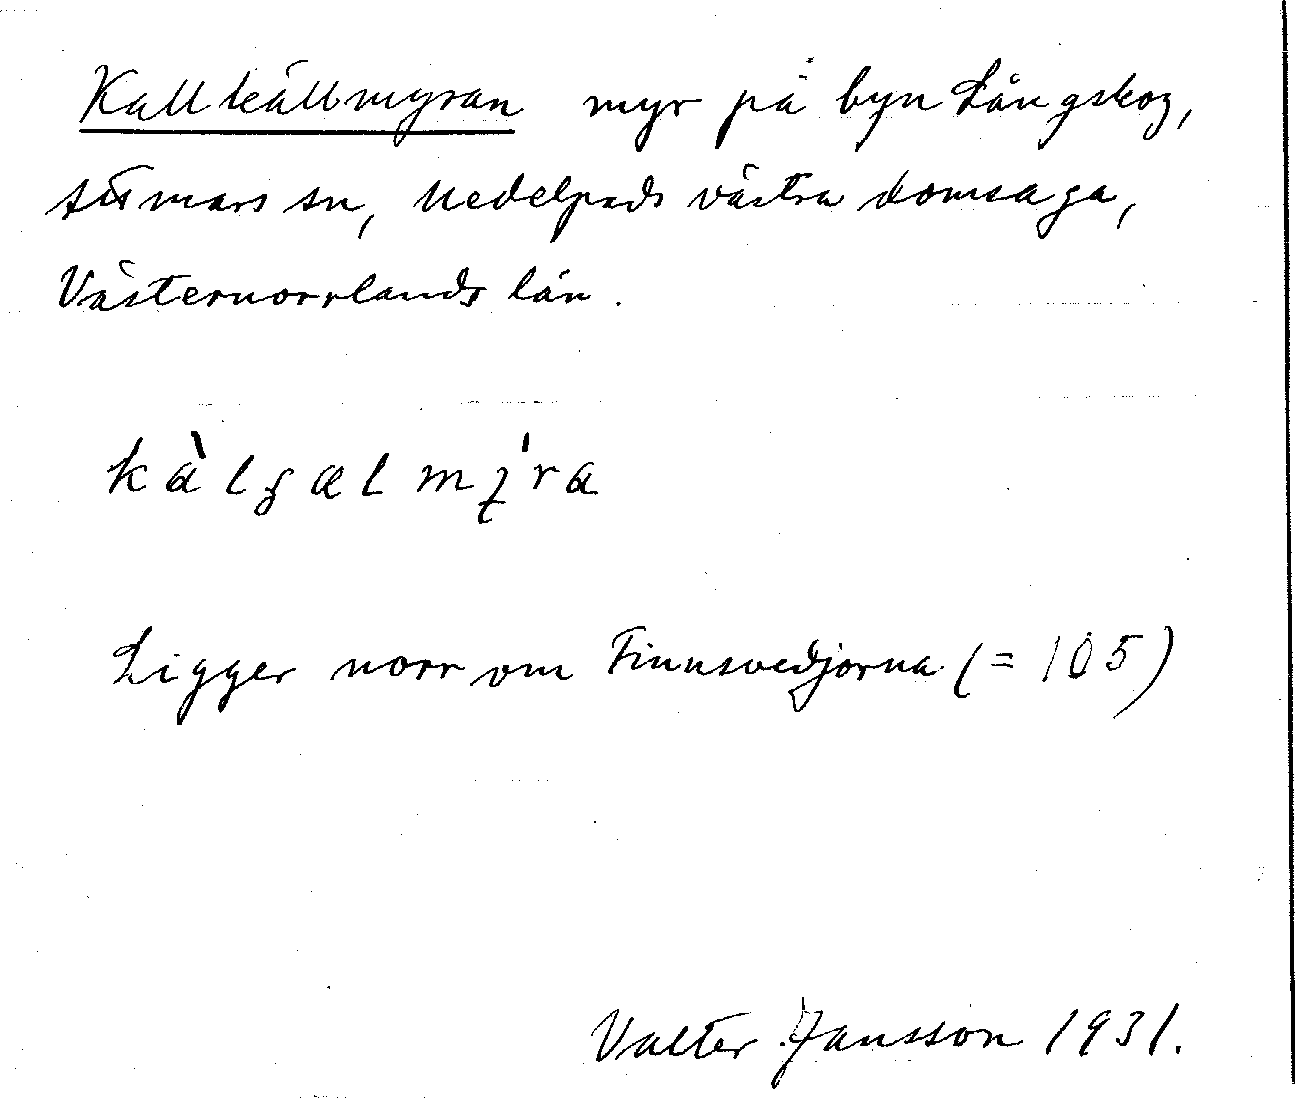 Kallkällmyran myr på byn Långskog,
Attmars sn, Medelpads västra domsaga,
Västernorrlands län.
Ligger norr om Finnsvedjorna (= 105)
Valter Jansson 1931.